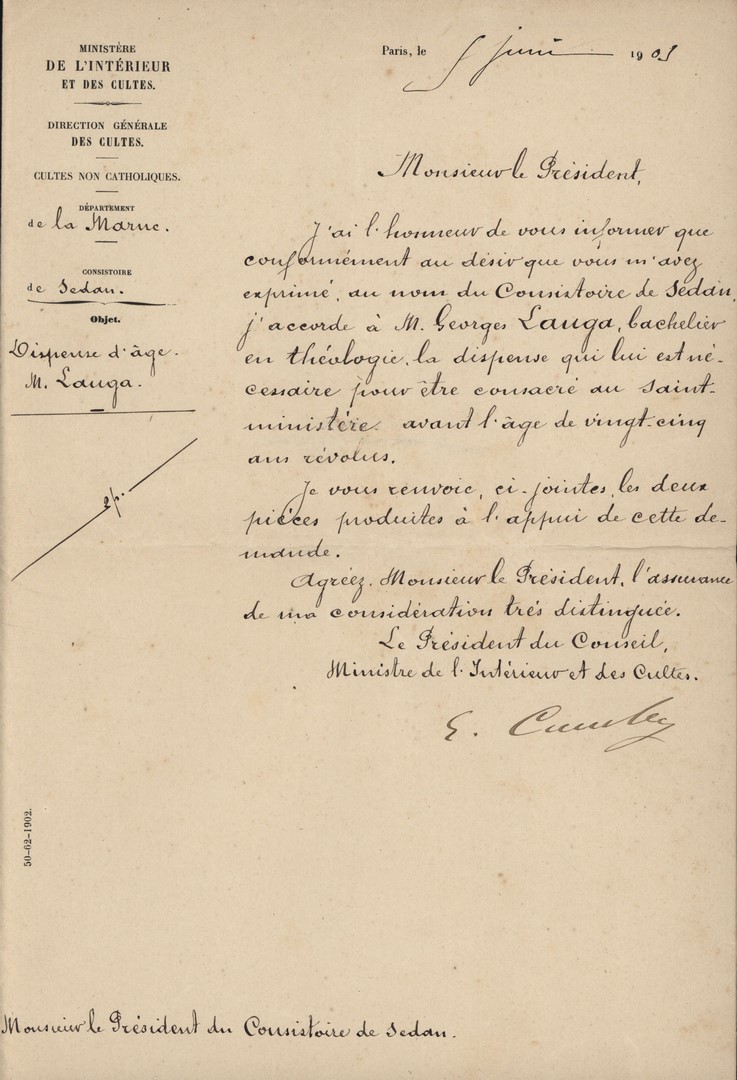 MINISTÈRE
DE L'INTÉRIEUR
ET DES CULTES.
DIRECTION GÉNÉRALE
DES CULTES.
CULTES NON CATHOLIQUES.
DÉPARTEMENT
de la Marne.
CONSISTOIRE
de Sedan.
Objet.
Dispense d'âge.
M. Lauga.
2 p.
Paris, le 5 juin 1903
Monsieur le Président,
J'ai l'honneur de vous informer que
conformément au désir que vous m'avez
exprimé, au nom du Consistoire de Sedan,
j'accorde à M. Georges Lauga, bachelier
en théologie, la dispense qui lui est né-
cessaire pour être consacré au saint-
ministère avant l'âge de vingt-cinq
ans révolus.
Je vous renvoie, ci-jointes, les deux
pièces produites à l'appui de cette de-
mande.
Agréez, Monsieur le Président, l'assurance
de ma considération très distinguée.
Le Président du Conseil,
Ministre de l'Intérieur et des Cultes.
E. Combes
50-62-1902.
Monsieur le Président du Consistoire de Sedan.